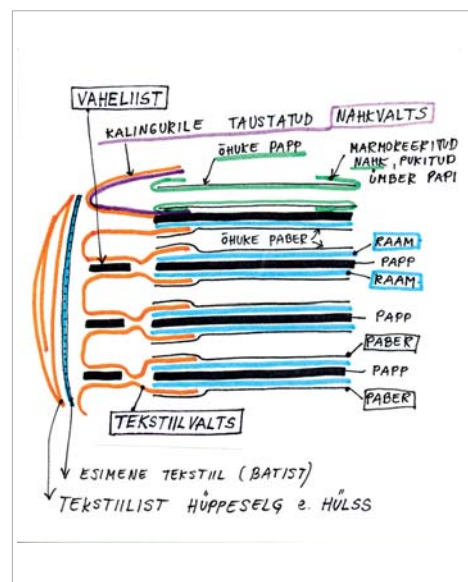 VAHELIIST
KALINGURILE TAUSTATUD NAHKVALTS
ÕHUKE PAPP
MARMOREERITUD
NAHK, PUKITUD
ÜMBER PAPI
ÕHUKE PABER
RAAM
PAPP
RAAM
PAPP
PABER
PAPP
PABER
TEKSTIILVALTS
ESIMENE TEKSTIIL (BATIST)
TEKSTIILIST HÜPPESELG e. HÜLSS